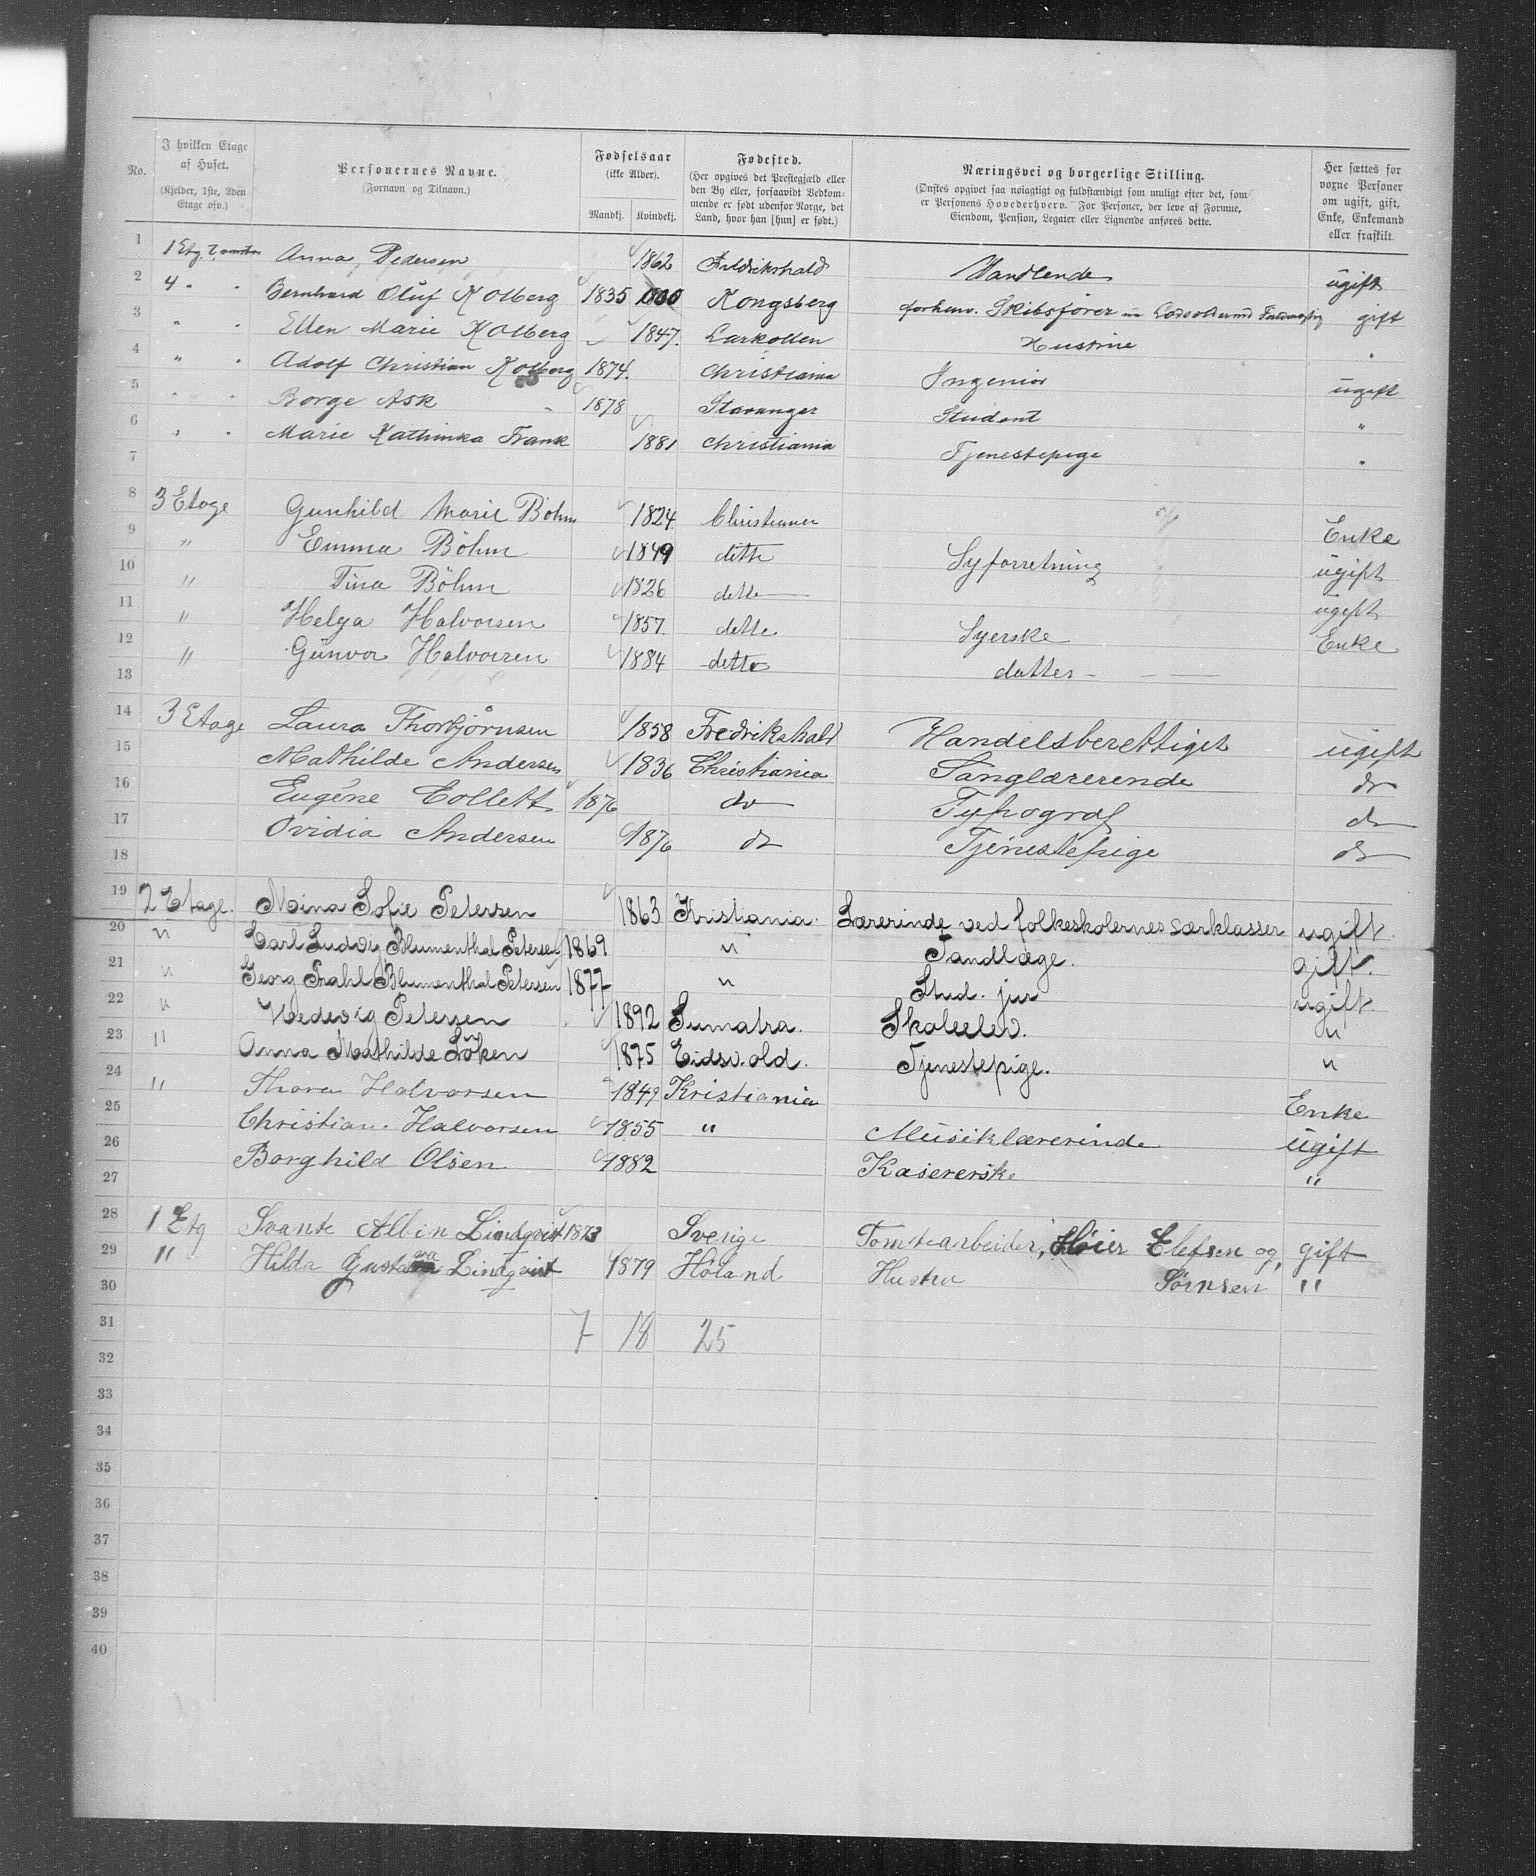 No. I hvilken Etage af Huset. (Kjelder, 1ste, 2den Etage osv.) Personernes Navne. (Fornavn og Tilnavn.) Fødselsaar (ikke Alder). Mandkj. Kvindekj. Fødested. (Her opgives det Prestegjæld eller den By eller, forsaavidt Vedkommende er født udenfor Norge, det Land, hvor han [hun] er født.) Næringsvei og borgerlige Stilling. (Ønskes opgivet saa nøiagtigt og fuldstændigt som muligt efter det, som er Personens Hovederhverv. For Personer, der leve af Formue, Eiendom, Pension, Legater eller Lignende anføres dette. Her sættes for voxne Personer om ugift, gift, Enke, Enkemand eller fraskilt.
1 1 Etg. Anna Pedersen 1862 Fredrikshald Handlende ugift
2 4 " " Bernhard Oluf Kolberg 1835 Kongsberg forhenv. Skibsfører gift
3 " " Ellen Marie Kolberg 1847. Larkollen Hustrue "
4 " " Adolf Christian Kolberg 1874. Christiania Ingeniør ugift
5 " " Borge Ask 1878 Stavanger Student "
6 " " Marie Kathinka Frank 1881 Christiania Tjenestepige "
7
8 3 Etage Gunhild Marie Bøhm 1824 Christiania Enke
9 " Emma Böhm 1849 dette Syforretning ugift
10 " Tina Böhm 1826 dette ugift
11 " Helga Halvorsen 1857. dette Syerske Enke
12 " Günvor Halvorsen 1884 dette datter
13
14 3 Etage Laura Thorbjörnsen 1858 Fredrikshald Handelsberettiget ugift
15 Mathilde Andersen 1836 Christiania Sanglærerende do
16 Eugéne Collett 1876 do Typograf do
17 Ovidia Andersen 1876 do Tjenestepige do
18
19 2 Etage. Mina Sofie Petersen 1863 Kristiania. Lærerinde ved folkeskolernes særklasser ugift.
20 " Carl Ludvig Blumenthal Petersen 1869 " Tandlæge. gift.
21 " Georg Prahl Blumenthal Petersen 1877 " Stud. jur ugift.
22 " Hedevig Petersen 1892 Sumatra. Skoleelev. "
23 " Anna Mathilde Löken 1875 Eidsvold. Tjenestepige. "
24 " Thora Halvorsen 1849 Kristiania Enke
25 Christiane Halvorsen 1855 " Musiklærerinde ugift
26 Borghild Olsen 1882 Kasererske "
27
28 1 Etg Svante Albin Lindqvist 1873 Sverige Tomtearbeider, Høier Elefsen og, gift
29 " Hilda Gustava Lindqvist 1879 Höland Hustru Sørnsen "
30
31 7 18 25
32
33
34
35
36
37
38
39
40